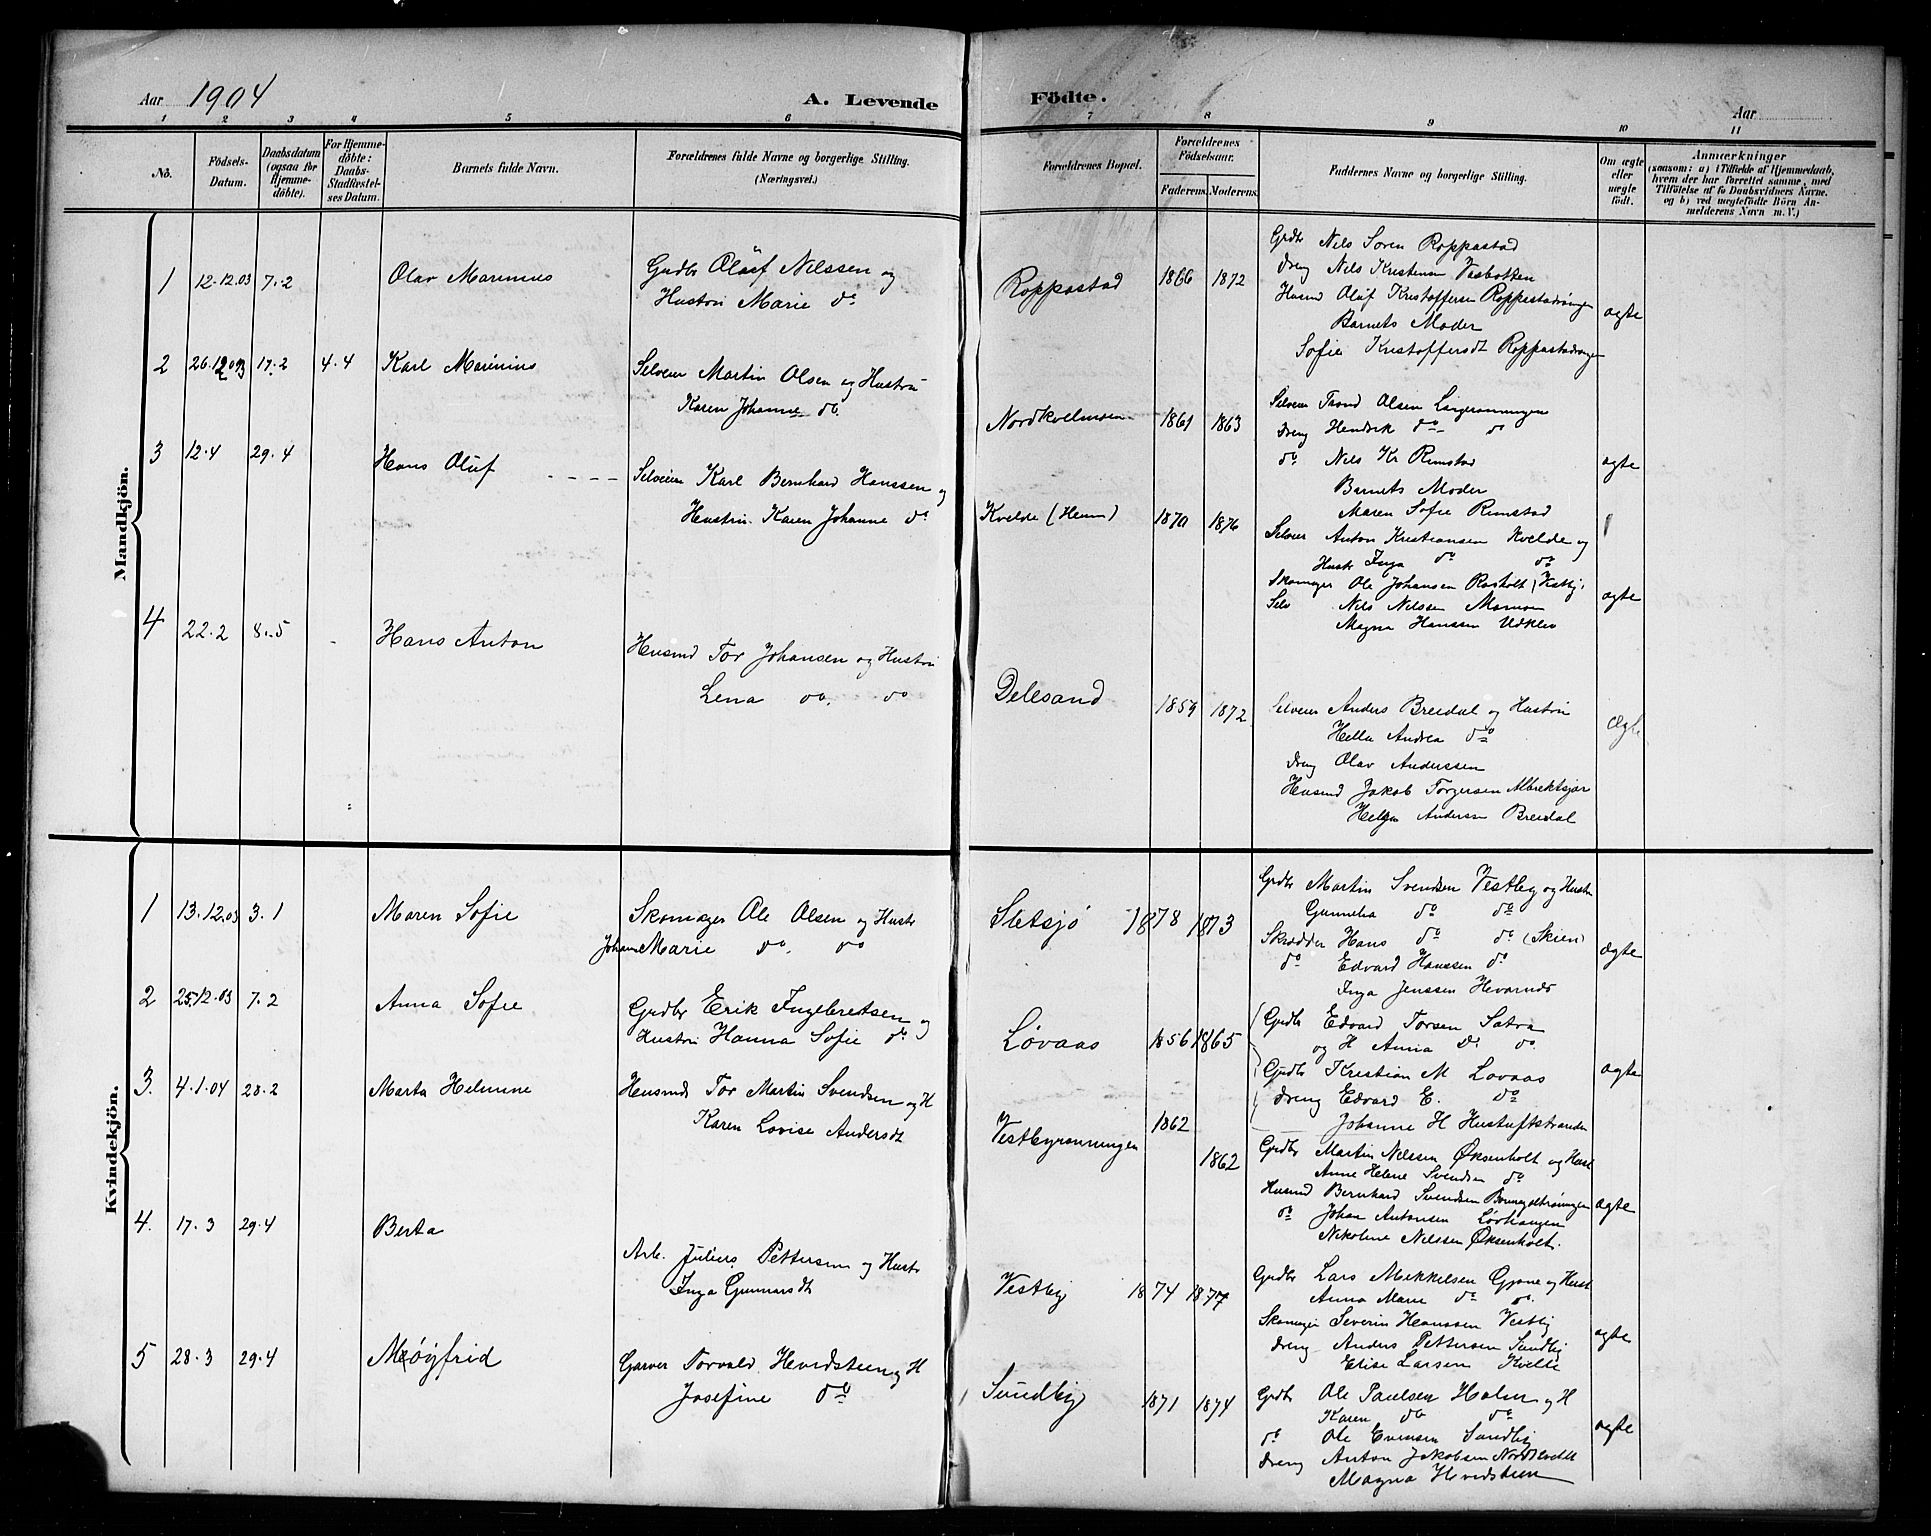 Aar 1904
A. Levende Födte.
Aar
1 2 3 4 5 6 7 8 9 10 11
No.
Födsels-Datum.
Daabsdatum (ogsaa for Hjemmedöbte).
For Hjemmedöbte: Daabs-Stadfæstelses Datum.
Barnets fulde Navn.
Forældrenes fulde Navne og borgerlige Stilling. (Næringsvei.)
Forældrenes Bopæl.
Forældrenes Födselsaar.
Faderens. Moderens.
Faddernes Navne og borgerlige Stilling.
Om ægte eller uægte födt.
Anmærkninger
(saasom: a) i Tilfælde af Hjemmedaab,
hvem der har forrettet samme, med
Tilföielse af to Daabsvidners Navne.
og b) ved uægtefödte Börn Anmelderens Navn m. V.)
Mandkjön.
1 12.12.03 7.2 Olav Marinius
Grdbr Oluf Nilssen og
Hustru Marie do
Roppestad 1866 1872
Grdbr Nils Soren Roppestad
dreng Nils Kristensen Vesbotten
Husmd Oluf Kristoffersen
Barnets Moder
Sofie Kristoffersdt
ægte
2 26.12.03 17.2 4.4 Karl Marinius
Selveier Martin Olsen og Hustru
Karen Johanne do.
Nordkvelmoen 1861 1863
Selveier Trond Olsen
dreng Hendrik do do
do Nils Kr Rimstad
Barnets Moder
Maren Sofie Rimstad
ægte
3 12.4 29.4 Hans Oluf
Selveier Karl Bernhard Hanssen og
Hustru Karen Johanne do
Kvelde (Hem) 1870 1876
Selveier Anton Kristiansen Kvelde og
Hustr Inga do do
Skomager Ole Johansen Rasholt (Vestby)
Selv Nils Nilssen Mamoen
Magna Hanssen Udklev
ægte
4 22.2 8.5 Hans Anton
Husmd Tor Johansen og Hustru
Lena do. do
Delesand 1859 1872
Selveier Anders Breidal og Hustru
Hella Andrea do
dreng Olav Anderssen
Husmd Jakob Torgersen Albrektsjær
Helga Anderssen Breidal
ægte
Kvindekjön.
1 13.12.03 3.1 Maren Sofie
Skomager Ole Olsen og Hustr
Johanne Marie do. do
Sletsjø 1878 1873
Grdbr Martin Svendsen Vestby og Hustr
Gunnelia do do
Skrædder Hans do do (Skien)
do Edvard Hanssen do
Inga Jenssen Hevarnes
ægte
2 25.12.03 7.2 Anna Sofie
Grdbr Erik Ingebretsen og
Hustru Hanna Sofie do
Løvaas 1856 1865
Grdbr Edvard Torsen Satra
og H Anna Do do.
Grdbr Kristian M Lovaas
dreng Edvard E. do
Johanne H
ægte
3. 4.1.04 28.2 Marta Helmine
Husmd Tor Martin Svendsen og H
Karen Lovise Andersdt
Vestbyrønningen 1862 1862
Grdbr Martin Nilssen Øksenholt og Hust
Anne Helene Svendsen do
Husmd Bernhard Svendsen
do Johan Antonsen Løvhaugen
Nikoline Nilssen Øksenholt.
ægte
4. 17.3 29.4 Berta
Arb. Julius Pettersen og Hustr
Inga Gunnarsdt
Vestby 1874 1877
Grdbr Lars Mikkelsen Gjone og Hust
Anna Marie do do.
Skomager Severin Hanssen Vestby
dreng Anders Pettersen Sundby
Elise Larsen Kvelle
ægte
5 28.3 29.4 Møyfrid
Garver Torvald Hvidsteen og H
Josefine do
Sundby 1871 1874
Grdb Ole Paulsen Holm og H
Karen do do
do Ole Evensen Sundby
dreng Anton Jakobsen Nordkvelle
Magna Hvidsteen
ægte